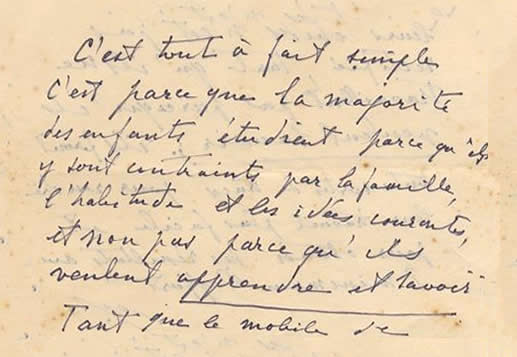 C'est tout à fait simple
C'est parce que la majorité
des enfants étudient parce qu'ils
y sont contraints par la famille,
l'habitude et les idées courantes,
et non pas parce qu'ils
veulent apprendre et savoir
Tant que le mobile de